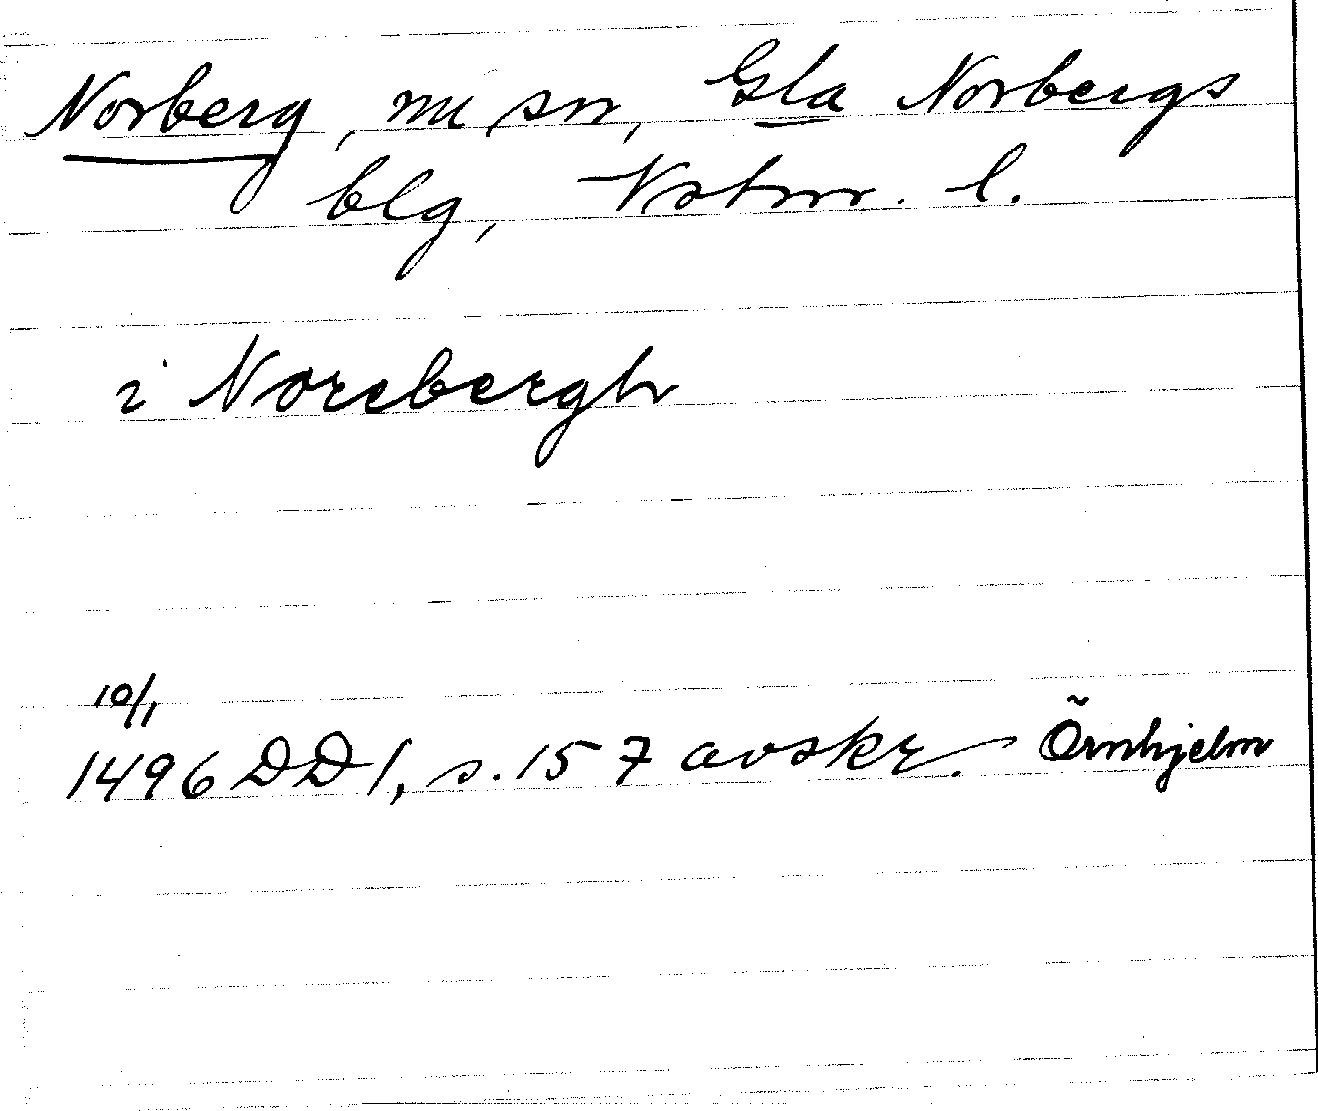 Norberg, nu sn, Gla Norbergs
blg, Vstm. l.
i Norebergh
10/1
1496 DD 1, s. 157 avskr. Örnhjelm